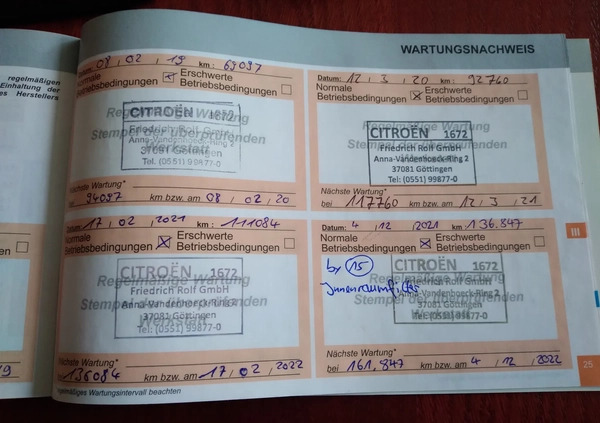 regelmäßigen
Einhaltung der
es Herstellers
en
9
WARTUNGSNACHWEIS
Datum: 08, 02, 19 km: 69097
Normale
Betriebsbedingungen
Erschwerte
Betriebsbedingungen
Regelmäßige Wartung
Stempel der überprüfenden
Werkstatt
CITROËN 1672
Friedrich Rolf GmbH
Anna-Vandenhoeck-Ring 2
37081 Göttingen
Tel: (0551) 99877-0
Nächste Wartung*
bei 94097 km bzw. am 08, 02, 20
Datum: 12, 3, 20 km: 92760
Normale
Betriebsbedingungen
Erschwerte
Betriebsbedingungen
CITROËN 1672
Friedrich Rolf GmbH
Anna-Vandenhoeck-Ring 2
37081 Göttingen
Tel: (0551) 99877-0
Nächste Wartung*
bei 117760 km bzw. am 12, 3, 21
Datum: 17, 02, 2021 km: 111084
Normale
Betriebsbedingungen
Erschwerte
Betriebsbedingungen
Regelmäßige Wartung
Stempel der überprüfenden
Werkstatt
CITROËN 1672
Friedrich Rolf GmbH
Anna-Vandenhoeck-Ring 2
37081 Göttingen
Tel: (0551) 99877-0
Nächste Wartung*
bei 136084 km bzw. am 17, 02, 2022
Datum: 4, 12, 2021 km: 136.847
Normale
Betriebsbedingungen
Erschwerte
Betriebsbedingungen
15
Regelmäßige Wartung
Stempel der überprüfenden
Werkstatt
CITROËN 1672
Friedrich Rolf GmbH
Anna-Vandenhoeck-Ring 2
37081 Göttingen
Tel: (0551) 99877-0
Nächste Wartung*
bei 161.847 km bzw. am 4, 12, 2022
regelmäßiges Wartungsintervall beachten
III
25